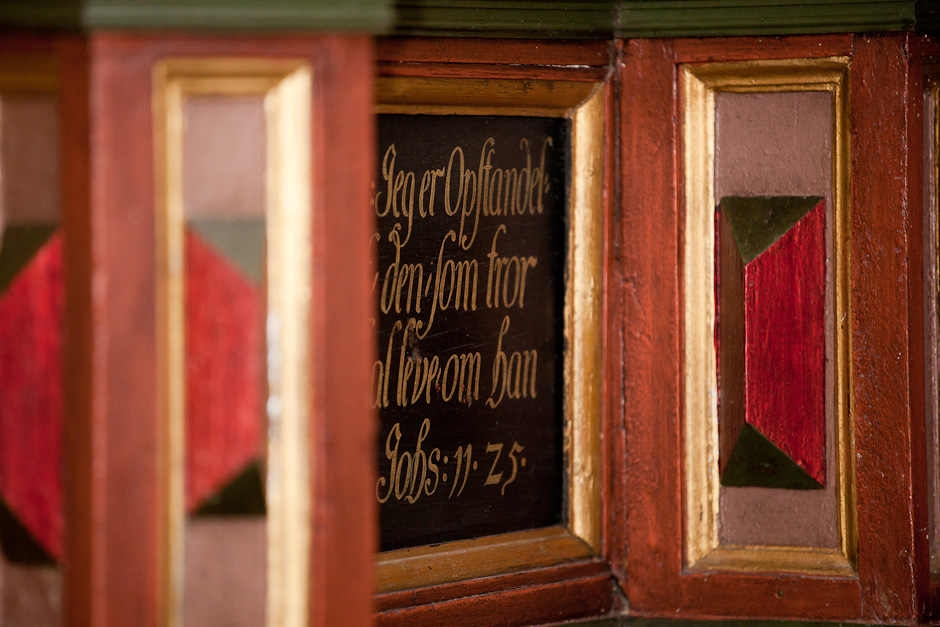 Jeg er Opstandel-
den som tror
leve om han
Johs: 11. 25.